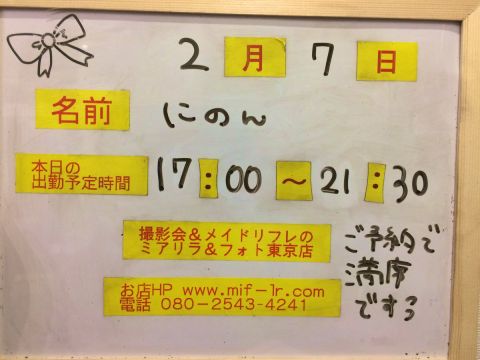 2月7日
名前 にのん
本日の
出勤予定時間 17:00～21:30
撮影会＆メイドリフレの
ミアリラ＆フォト東京店
お店HP www.mif-lr.com
電話 080-2543-4241
ご予約で
満席
です